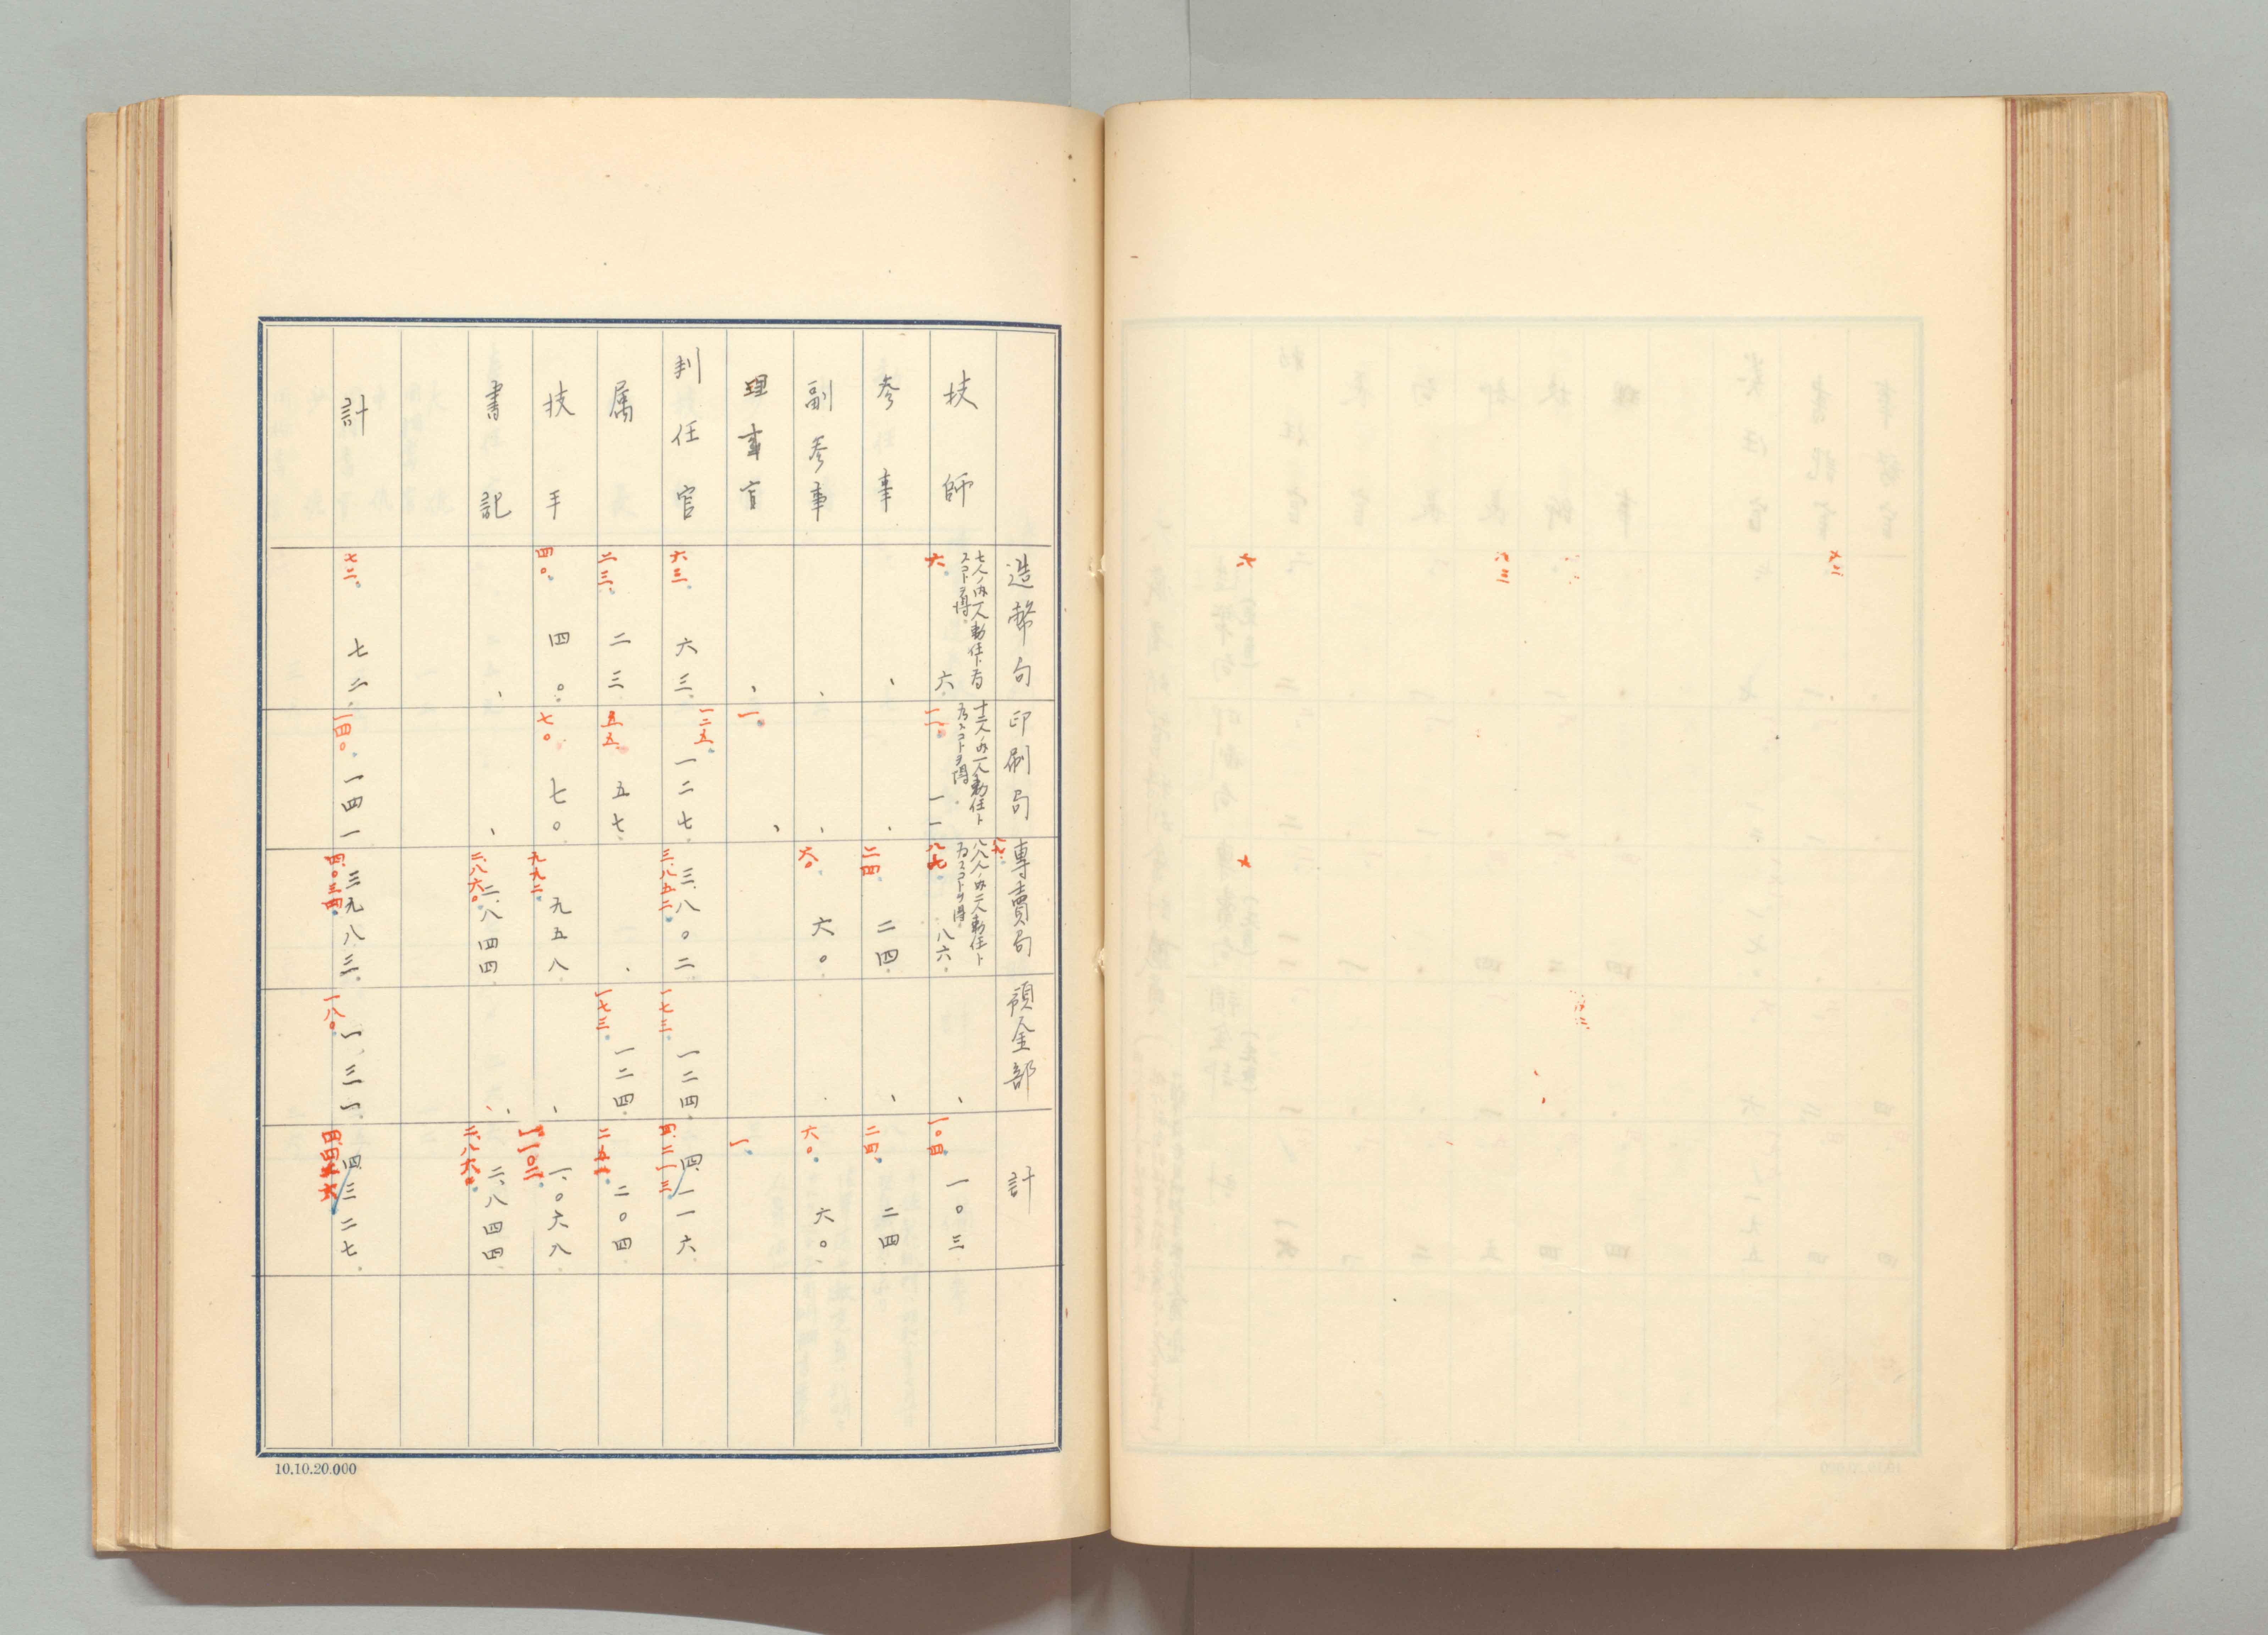 造幣局
印刷局
専賣局
預金部
計
技師
六
七人ノ内一人勅任ト為
スコトヲ得
六
一一
十二人ノ内一人勅任ト
為スコトヲ得
一一
八八人ノ内二人勅任ト
為スコトヲ得
八六
一〇四
一〇三
参事
二四
二四
二四
二四
副参事
六〇
六〇
六〇
六〇
理事官
一
一
判任官
六三
六三
一二五
一二七
三、八五二
三、八〇二
一七三
一二四
四、二一三
四、一一六
属
二三
二三
五五
五七
一七三
一二四
二五一
二〇四
技手
四〇
四〇
七〇
七〇
九九二
九五八
一、一〇二
一、〇六八
書記
二、八六〇
二、八四四
二、八六〇
二、八四四
計
七二
七二
一四〇
一四一
四、〇三四
三九八三
一八〇
一三一
四三二七
10.10.20.000